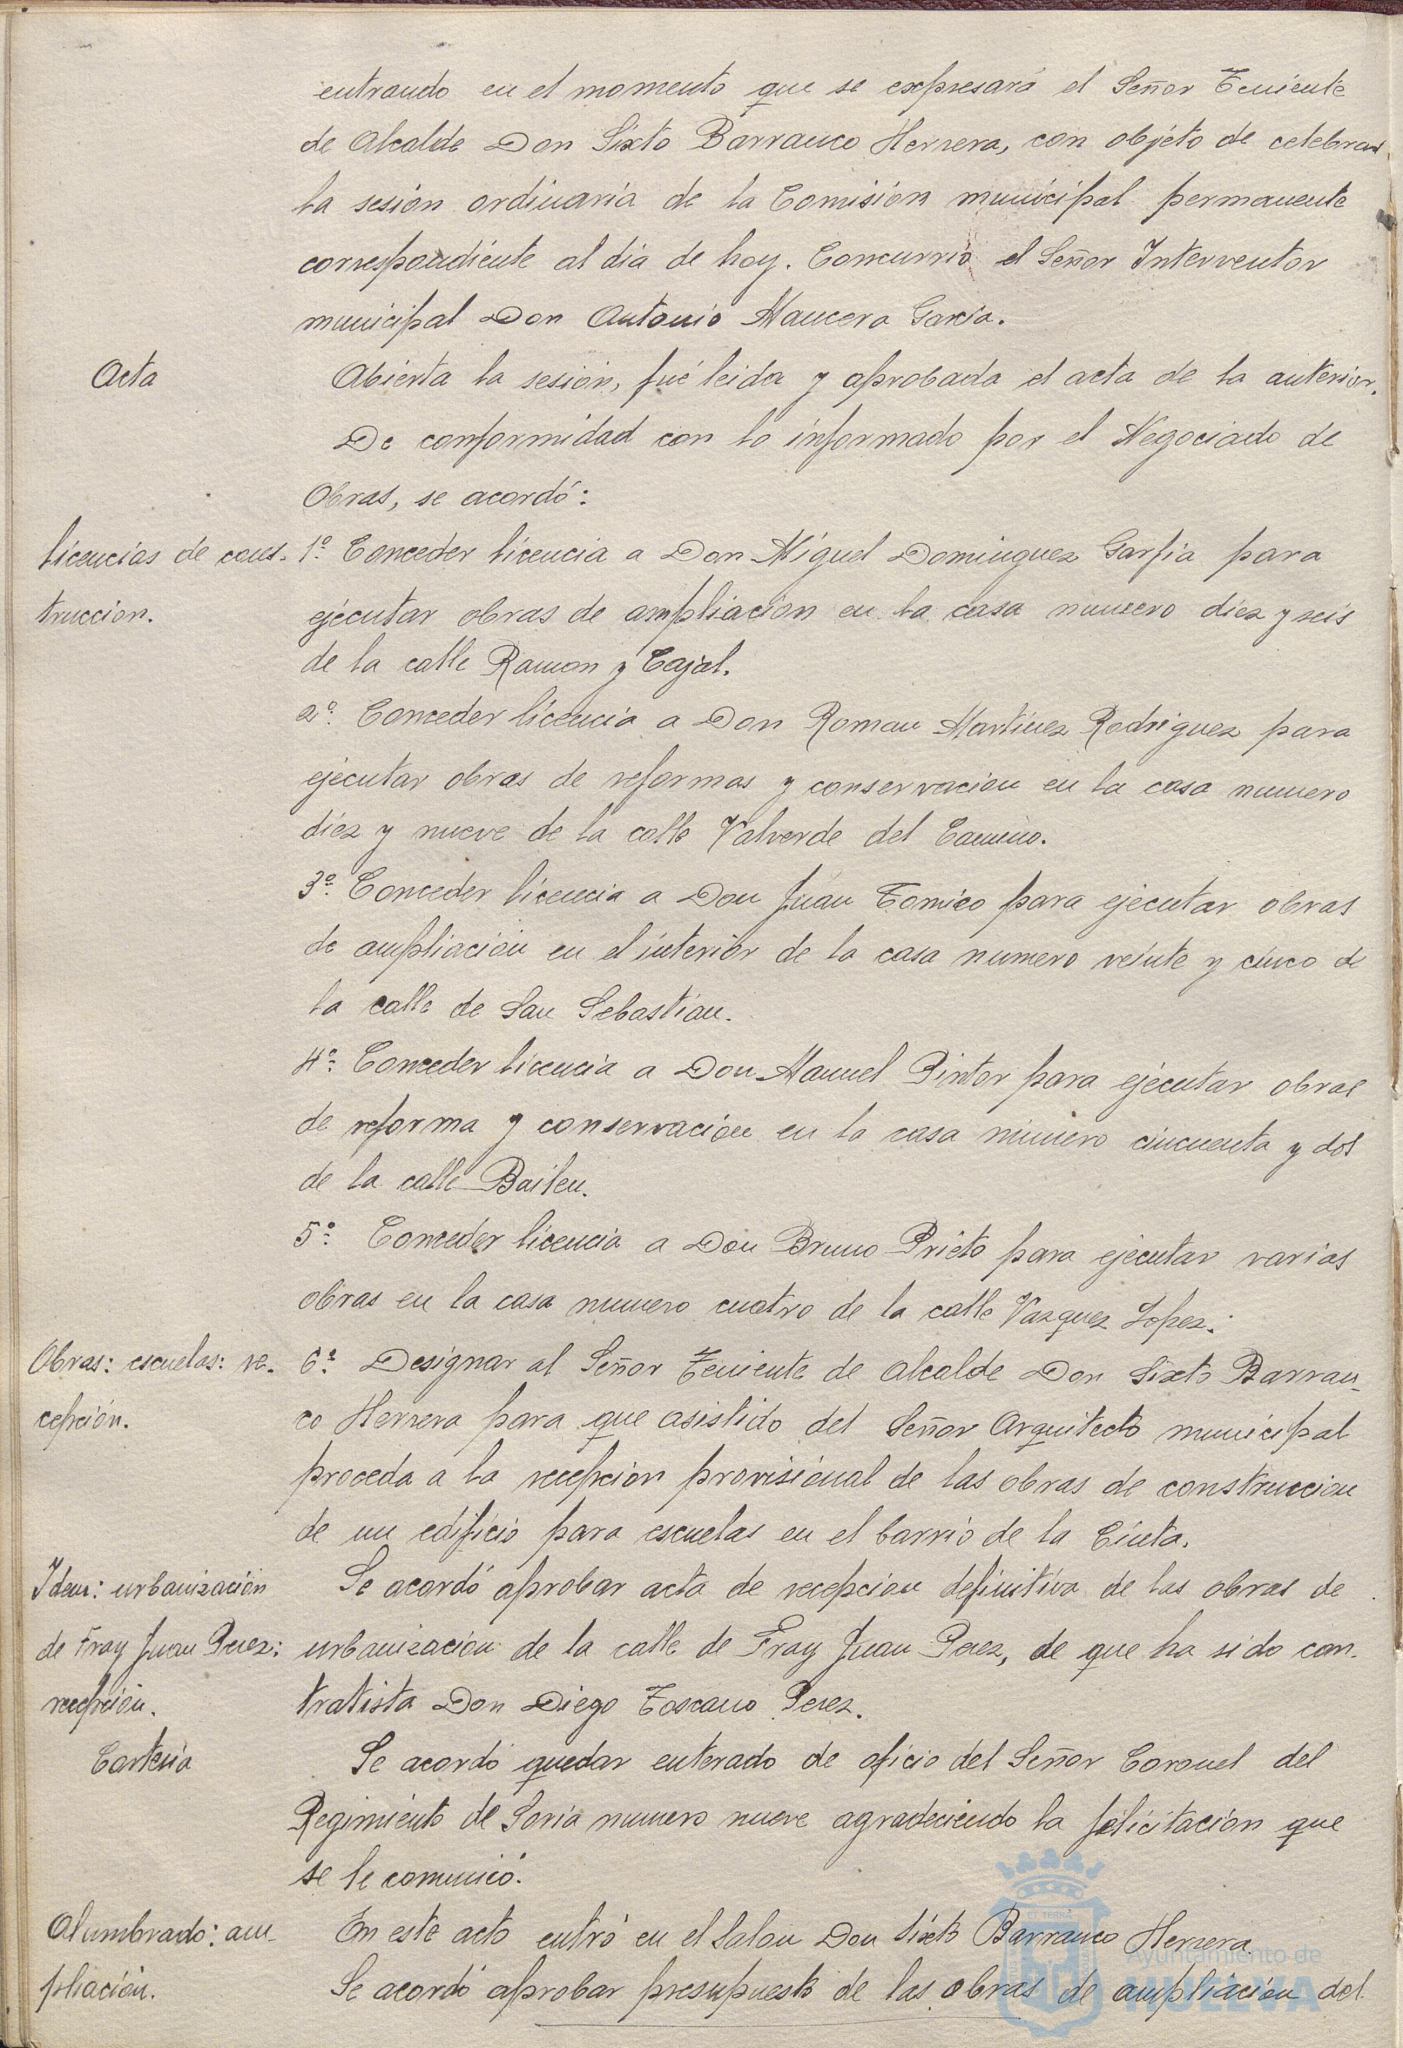 entrando en el momento que se expresará el Señor Teniente
de Alcalde Don Sixto Barranco Herrera, con objeto de celebrar
la sesión ordinaria de la Comisión municipal permanente
correspondiente al dia de hoy. Concurrió el Señor Interventor
municipal Don Antonio Mancera Garcia.
Acta
Abierta la sesión, fué leida y aprobada el acta de la anterior.
De conformidad con lo informado por el Negociado de
Obras, se acordó:
licencias de cons-
truccion.
1º. Conceder licencia a Don Miguel Dominguez Garfia para
ejecutar obras de ampliación en la casa numero diez y seis
de la calle Ramon y Cajal.
2º. Conceder licencia a Don Roman Martinez Rodriguez para
ejecutar obras de reformas y conservacion en la casa numero
diez y nueve de la calle Valverde del Camino.
3º. Conceder licencia a Don Juan Tomico para ejecutar obras
de ampliación en el interior de la casa numero veinte y cinco de
la calle de San Sebastian.
4º. Conceder licencia a Don Manuel Pintor para ejecutar obras
de reforma y conservación en la casa número cincuenta y dos
de la calle Bailen.
5º. Conceder licencia a Don Bruno Prieto para ejecutar varias
obras en la casa numero cuatro de la calle Vazquez Lopez.
Obras: escuelas: re-
cepción.
6º. Designar al Señor Teniente de Alcalde Don Sixto Barran-
co Herrera para que asistido del Señor Arquitecto municipal
proceda a la recepcion provisional de las obras de construccion
de un edificio para escuelas en el barrio de la Cinta.
Idem: urbanización
de Fray Juan Perez:
recepción.
Se acordó aprobar acta de recepcion definitiva de las obras de
urbanización de la calle de Fray Juan Perez, de que ha sido con-
tratista Don Diego Toscano Perez.
Cartería
Se acordó quedar enterado de oficio del Señor Coronel del
Regimiento de Soria numero nueve agradeciendo la felicitación que
se le comunicó.
Alumbrado: am-
pliación.
En este acto entró en el Salon Don Sixto Barranco Herrera
Se acordó aprobar presupuesto de las obras de ampliación del
Ayuntamiento de
HUELVA